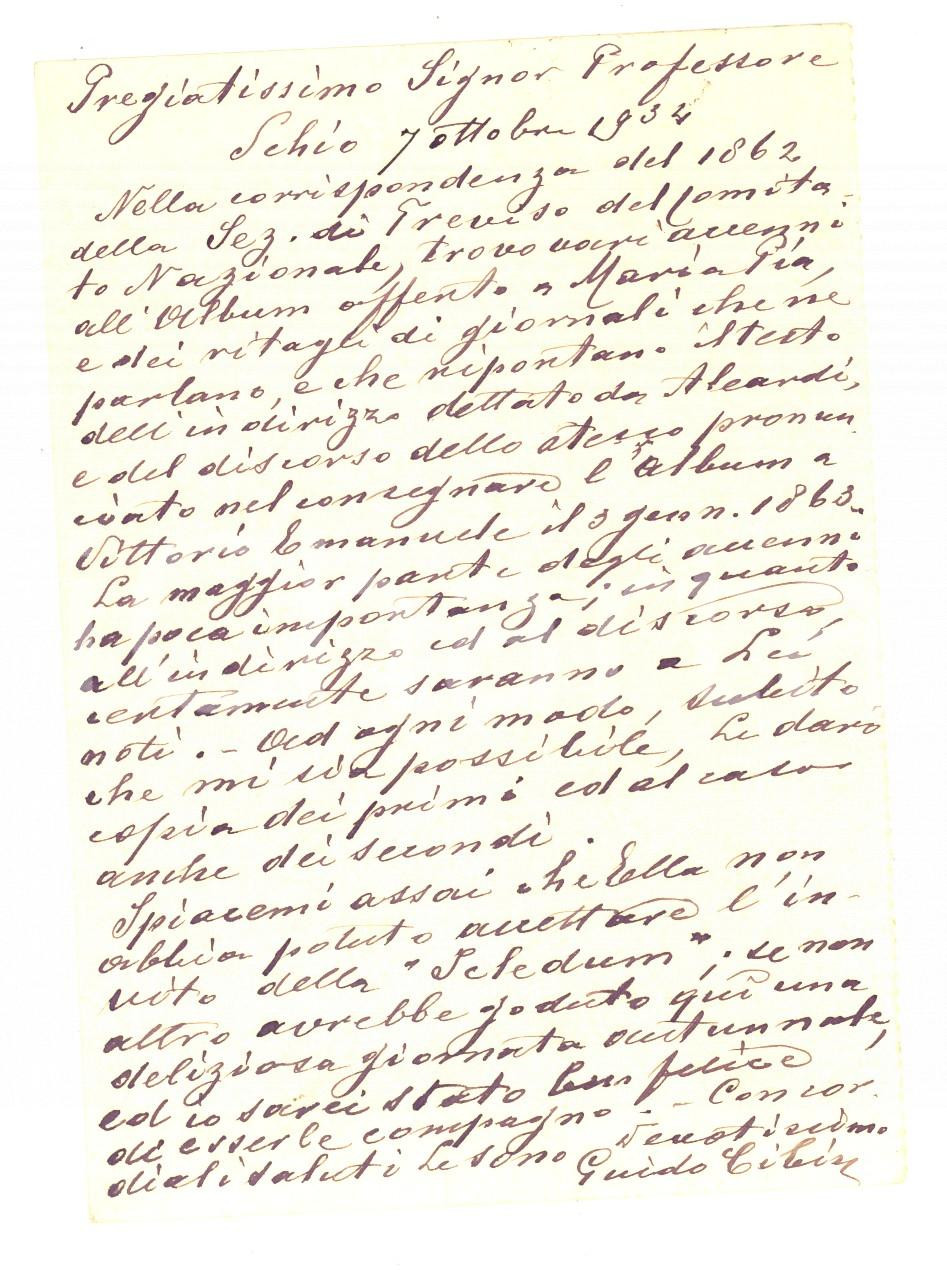 Pregiatissimo Signor Professore
Schio 7 ottobre 1934
Nella corrispondenza del 1862
della Sez. di Treviso del Comita-
to Nazionale, trovo vari accenni
all'Album offerto a Maria Pia,
e dei ritagli di giornali che ne
parlano, e che riportano il testo
dell'indirizzo dettato da Aleardi,
e del discorso dello stesso pronun
ciato nel consegnare l'album a
Vittorio Emanuele il 3 genn. 1863.
La maggior parte degli accenni
ha poca importanza; in quanto
all'indirizzo ed al discorso,
certamente saranno a Lei
noti. - Ad ogni modo, subito
che mi sia possibile, Le darò
copia dei primi ed al caso
anche dei secondi.
Spiacemi assai che Ella non
abbia potuto accettare l'in-
vito della "Scledum"; se non
altro avrebbe goduto qui una
deliziosa giornata autunnale,
ed io sarei stato ben felice
di esserle compagno. - Concor
diali saluti Le sono Devotissimo
Guido Cibin